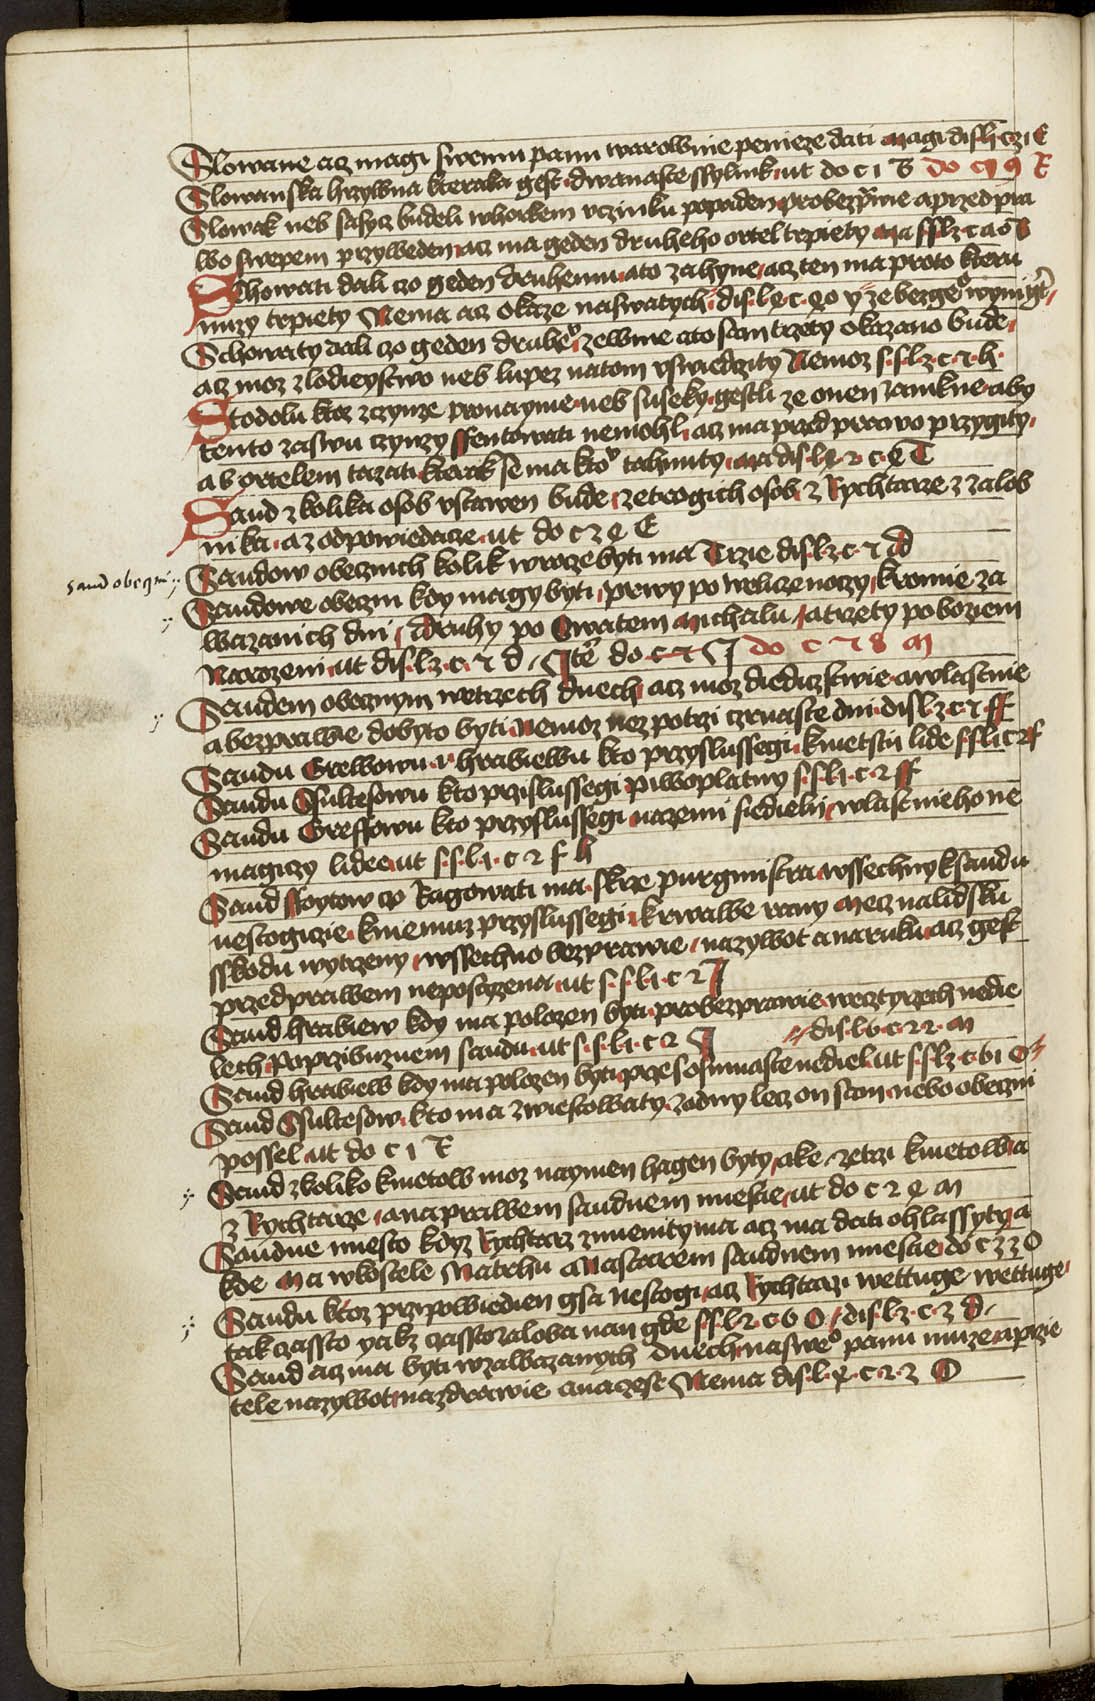 Slowane acz magi swemu panu warowne penieze dati magi dis l czi E
Slowanska hrzywna kteraka gest dwanaste ssylink ut do c 1 B do c 19 R
Slowak neb sasycz budeli whorkem vczinku popaden probezprwie a przed pra
wo swepem przyweden acz ma geden druheho ortel trpiety
Schowati dali czo geden druhemu ato zahyne acz ten ma proto kteru
nuzy trpiety Nema acz okaze naswatych
Schowaty dali czo geden druheo zewme ato sam trzety okazano bude
acz moz zlodieystwo neb lupez natom vswiedczity Nemoz s s l z c 7 h
Stodolu ktoz zczynze pronayme neb suseky gestli ze onen zamkne aby
tento zaswu czynzy ssentowati nemohl acz ma przed prawo przygity
a b ortelem tazati kterak se ma kto tahnuty
Saud z kolika osob vstawen bude ze trogich osob z Rychtarze z zalob
nika a z odpowiedacze ut do c z 4 E
sand obeczni
Saudow obecznich kolik w rocze byti ma Trzie dis l z c 7 d
Saudowe obeczni kdy magy byti prwy po welicze noczy kromie za
wazanich dni druhy po swatem michalu a trzety po boziem
Narozeni ut dis l z c 7 d Ite do c 7 I do c 7 8 m
Saudem obecznym wetrzech dnech acz moz diediczstwie a wlastnie
a bezprawie dobyto byti Nemoz nez potrzi czrnaste dni dis l z c 7 ff
Saudu Grewowu hrabiewu kto przyslussegi kmetstij lide
Saudu Ssultesowu kto przislussegi piwoplatny s s l 1 c 2 ff
Saudu Greffowu kto przyslussegi nazemi siedielij wlastnieho ne
magiczy lidee ut s s l 1 c 2 f h
Saud ssoytow czo Ragowati ma skrze purgmistra wssechnyk saudu
nestogiczie kniemuz przyslussegi krwawe rany mecz nalidsku
sskodu wytrzeny wssechno bezprawie nazywot a naruku acz gest
przed prawem neposczena ut s s l 1 c 2 I
Saud hrabiew kdy ma polozen byti probezprawie wecztyrzech nedie
lech Poprzibuznem saudu ut s s l 1 c 2 I dis l 6 c 2 2 m
Saud hrabiew kdy ma polozen byti przes osmnaste nediel ut s s l z c 61
Saud Ssultesow kto ma zwiestowaty zadny lecz on sam nebo obeczni
possel ut do c 1 R
Saud z koliko kmetow moz naymen hagen byty ake ze trzi kmetow a
z Rychtarze a naprawem saudnem miestie ut do c 2 4 m
Saudne miesto kdyz Rychtarz zmenity ma acz ma dati ohlassyty a
kde Ma wkostele Natrhu a Nastarem saudnem miestie do c z z O
Saudu ktoz przipowiedien gsa nestogi acz Rychtarzi wettuge wettuge
tak czassto yakz czassto zaloba nan gde s s l 2 c 6 O dis l z c z d
Saud acz ma byti wzawazanych dnech naswo panu muze a przie
tele nazywot nazdrawie a naczest Nema dis l 4 c 2 z O